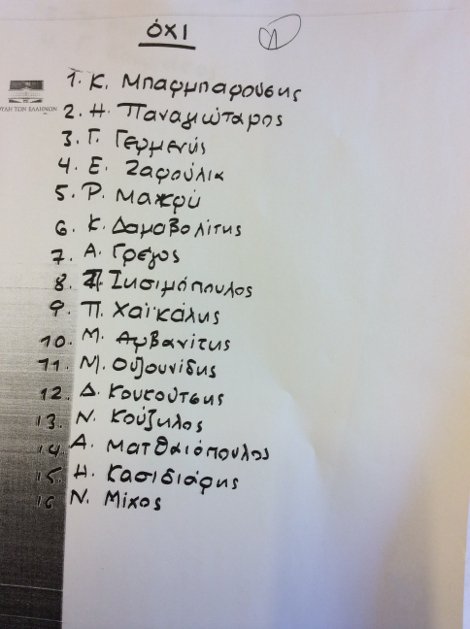 ΌΧΙ
1
ΒΟΥΛΗ ΤΩΝ ΕΛΛΗΝΩΝ
1. Κ. Μπαρμπαρούσης
2. Η. Παναγιώταρος
3. Γ. Γερμενής
4. Ε. Ζαρούλια
5. Ρ. Μακρή
6. Κ. Δαμαβολίτης
7. Α. Γρέγος
8. Ζησιμόπουλος
9. Π. Χαϊκάλης
10. Μ. Αρβανίτης
11. Μ. Ουζουνίδης
12. Δ. Κουκούτσης
13. Ν. Κούζηλος
14. Α. Ματθαιόπουλος
15. Η. Κασιδιάρης
16 Ν. Μίχος